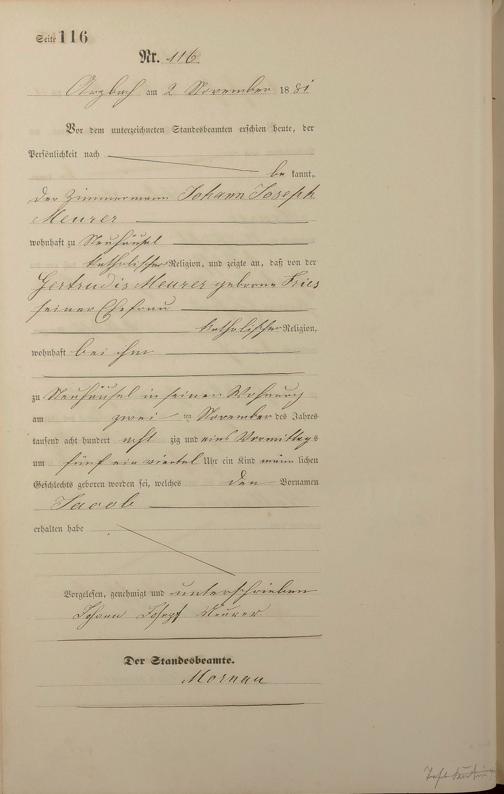 Seite 116
Nr. 116.
Arzbach am 2 November 1881
Vor dem unterzeichneten Standesbeamten erschien heute, der
Persönlichkeit nach
be kannt,
der Zimmermann Johann Joseph
Meurer
wohnhaft zu Neuhäusel
katholischer Religion, und zeigte an, daß von der
Gertrudis Meurer geborne Fries
seiner Ehefrau
katholischer Religion,
wohnhaft bei ihm
zu Neuhäusel in seiner Wohnung
am zwei ten November des Jahres
tausend acht hundert acht zig und eins Vormittags
um fünf ein viertel Uhr ein Kind männ lichen
Geschlechts geboren worden sei, welches den Vornamen
Jacob
erhalten habe
Vorgelesen, genehmigt und unterschrieben
Johann Josepf Meurer
Der Standesbeamte.